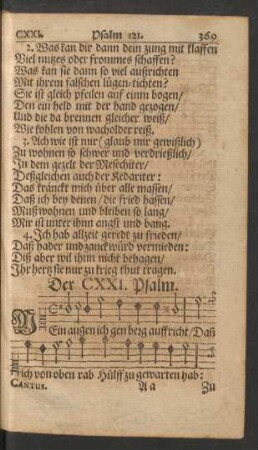 CXXI. Psalm 121. 369
2. Was kan dir dann dein zung mit klaffen
Viel nutzes oder frommes schaffen?
Was kan sie dann so viel außrichten
Mit ihrem falschen lügen-tichten?
Sie ist gleich pfeilen auf einm bogen/
Den ein held mit der hand gezogen/
Und die da brennen gleicher weiß/
Wie kohlen von wacholder reiß.
3. Ach wie ist mir (glaub mir gewißlich)
Zu wohnen so schwer und verdrießlich/
In den gezelt der Meschiter/
Deßgleichen auch der Kedariter:
Das kränckt mich über alle massen/
Daß ich bey denen/ die fried hassen/
Muß wohnen und bleiben so lang/
Mir ist unter ihnn angst und bang.
4. Ich hab allzeit geredt zu frieden/
Daß hader und zanck würd vermieden:
Diß aber wil ihm nicht behagen/
Ihr hertz sie nur zu krieg thut tragen.
Der CXXI. Psalm.
MEin augen ich gen berg auffricht/ Daß
ich von oben rab Hülff zu gewarten hab:
CANTUS. Aa Zu